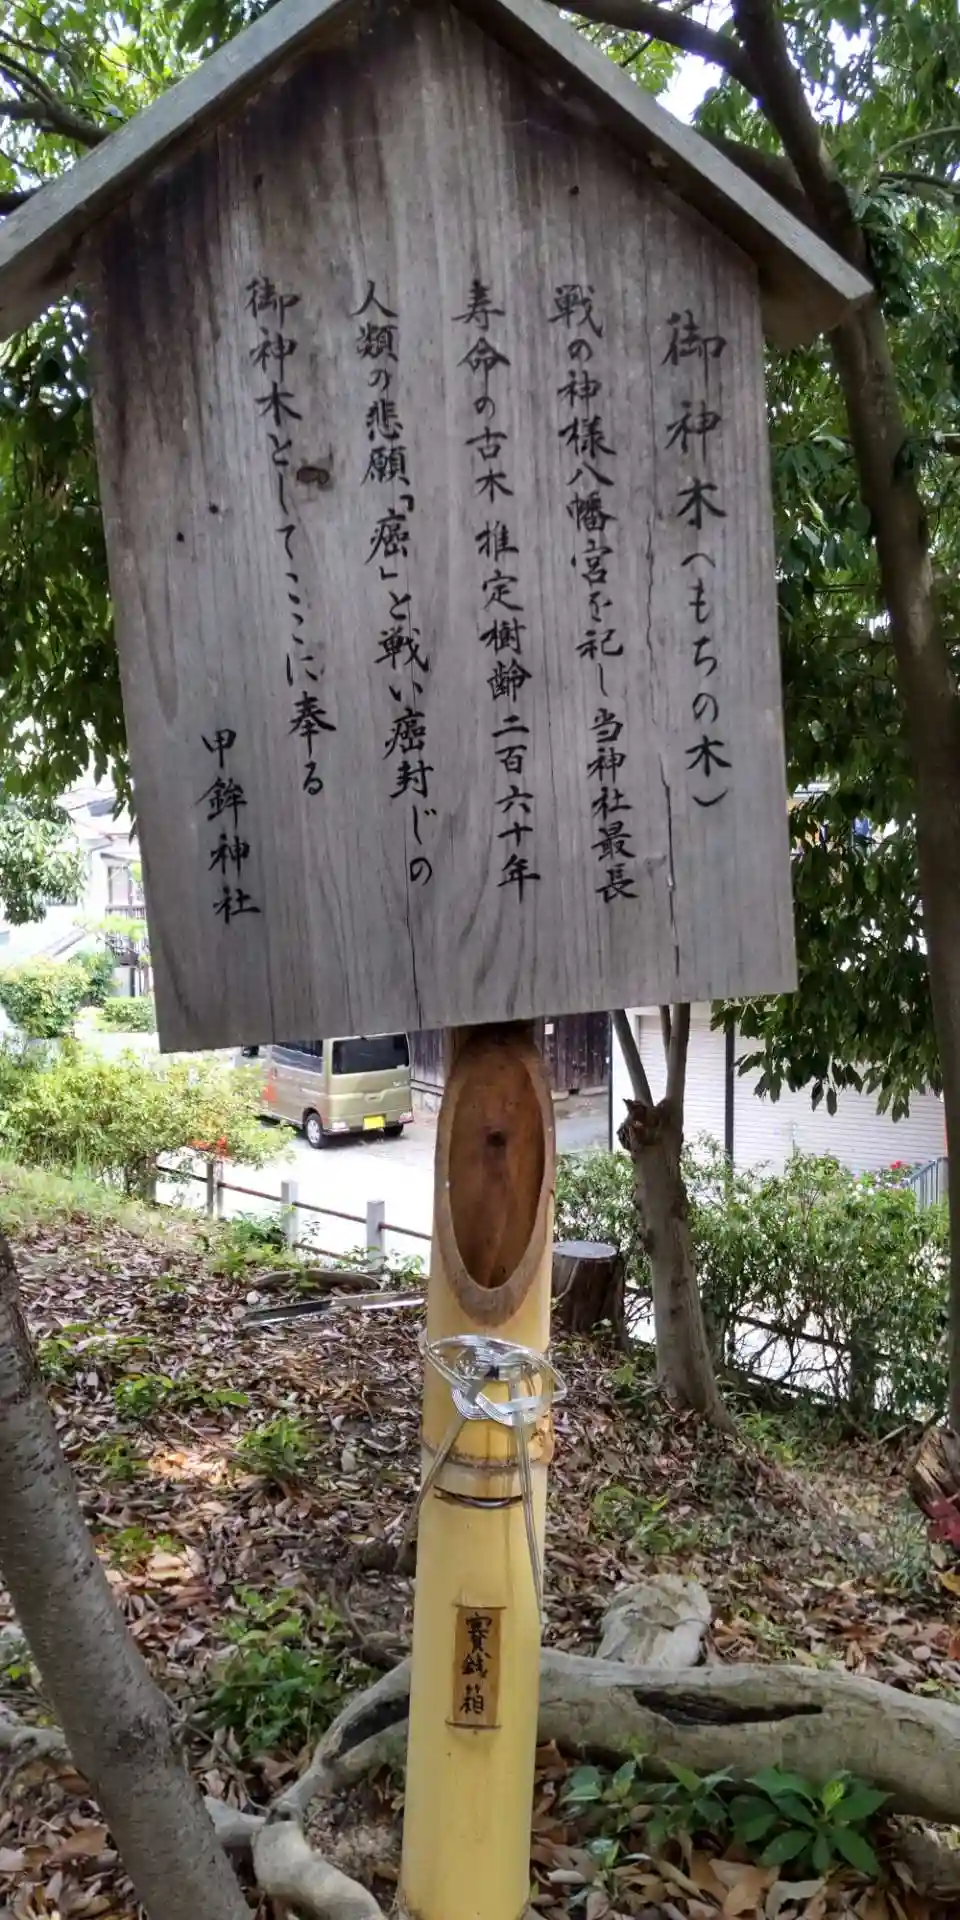 御神木(もちの木)
戦の神様八幡宮を祀し当神社最長
寿命の古木推定樹齢二百六十年
人類の悲願「癌」と戦い癌封じの
御神木としてここに奉る
甲鉾神社
賽銭箱